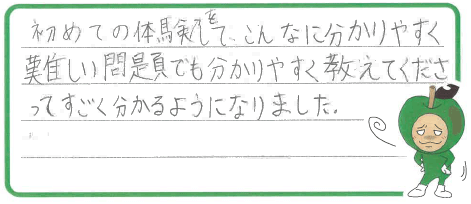 初めての体験をして、こんなに分かりやすく
難しい問題でも分かりやすく教えてくださ
ってすごく分かるようになりました。